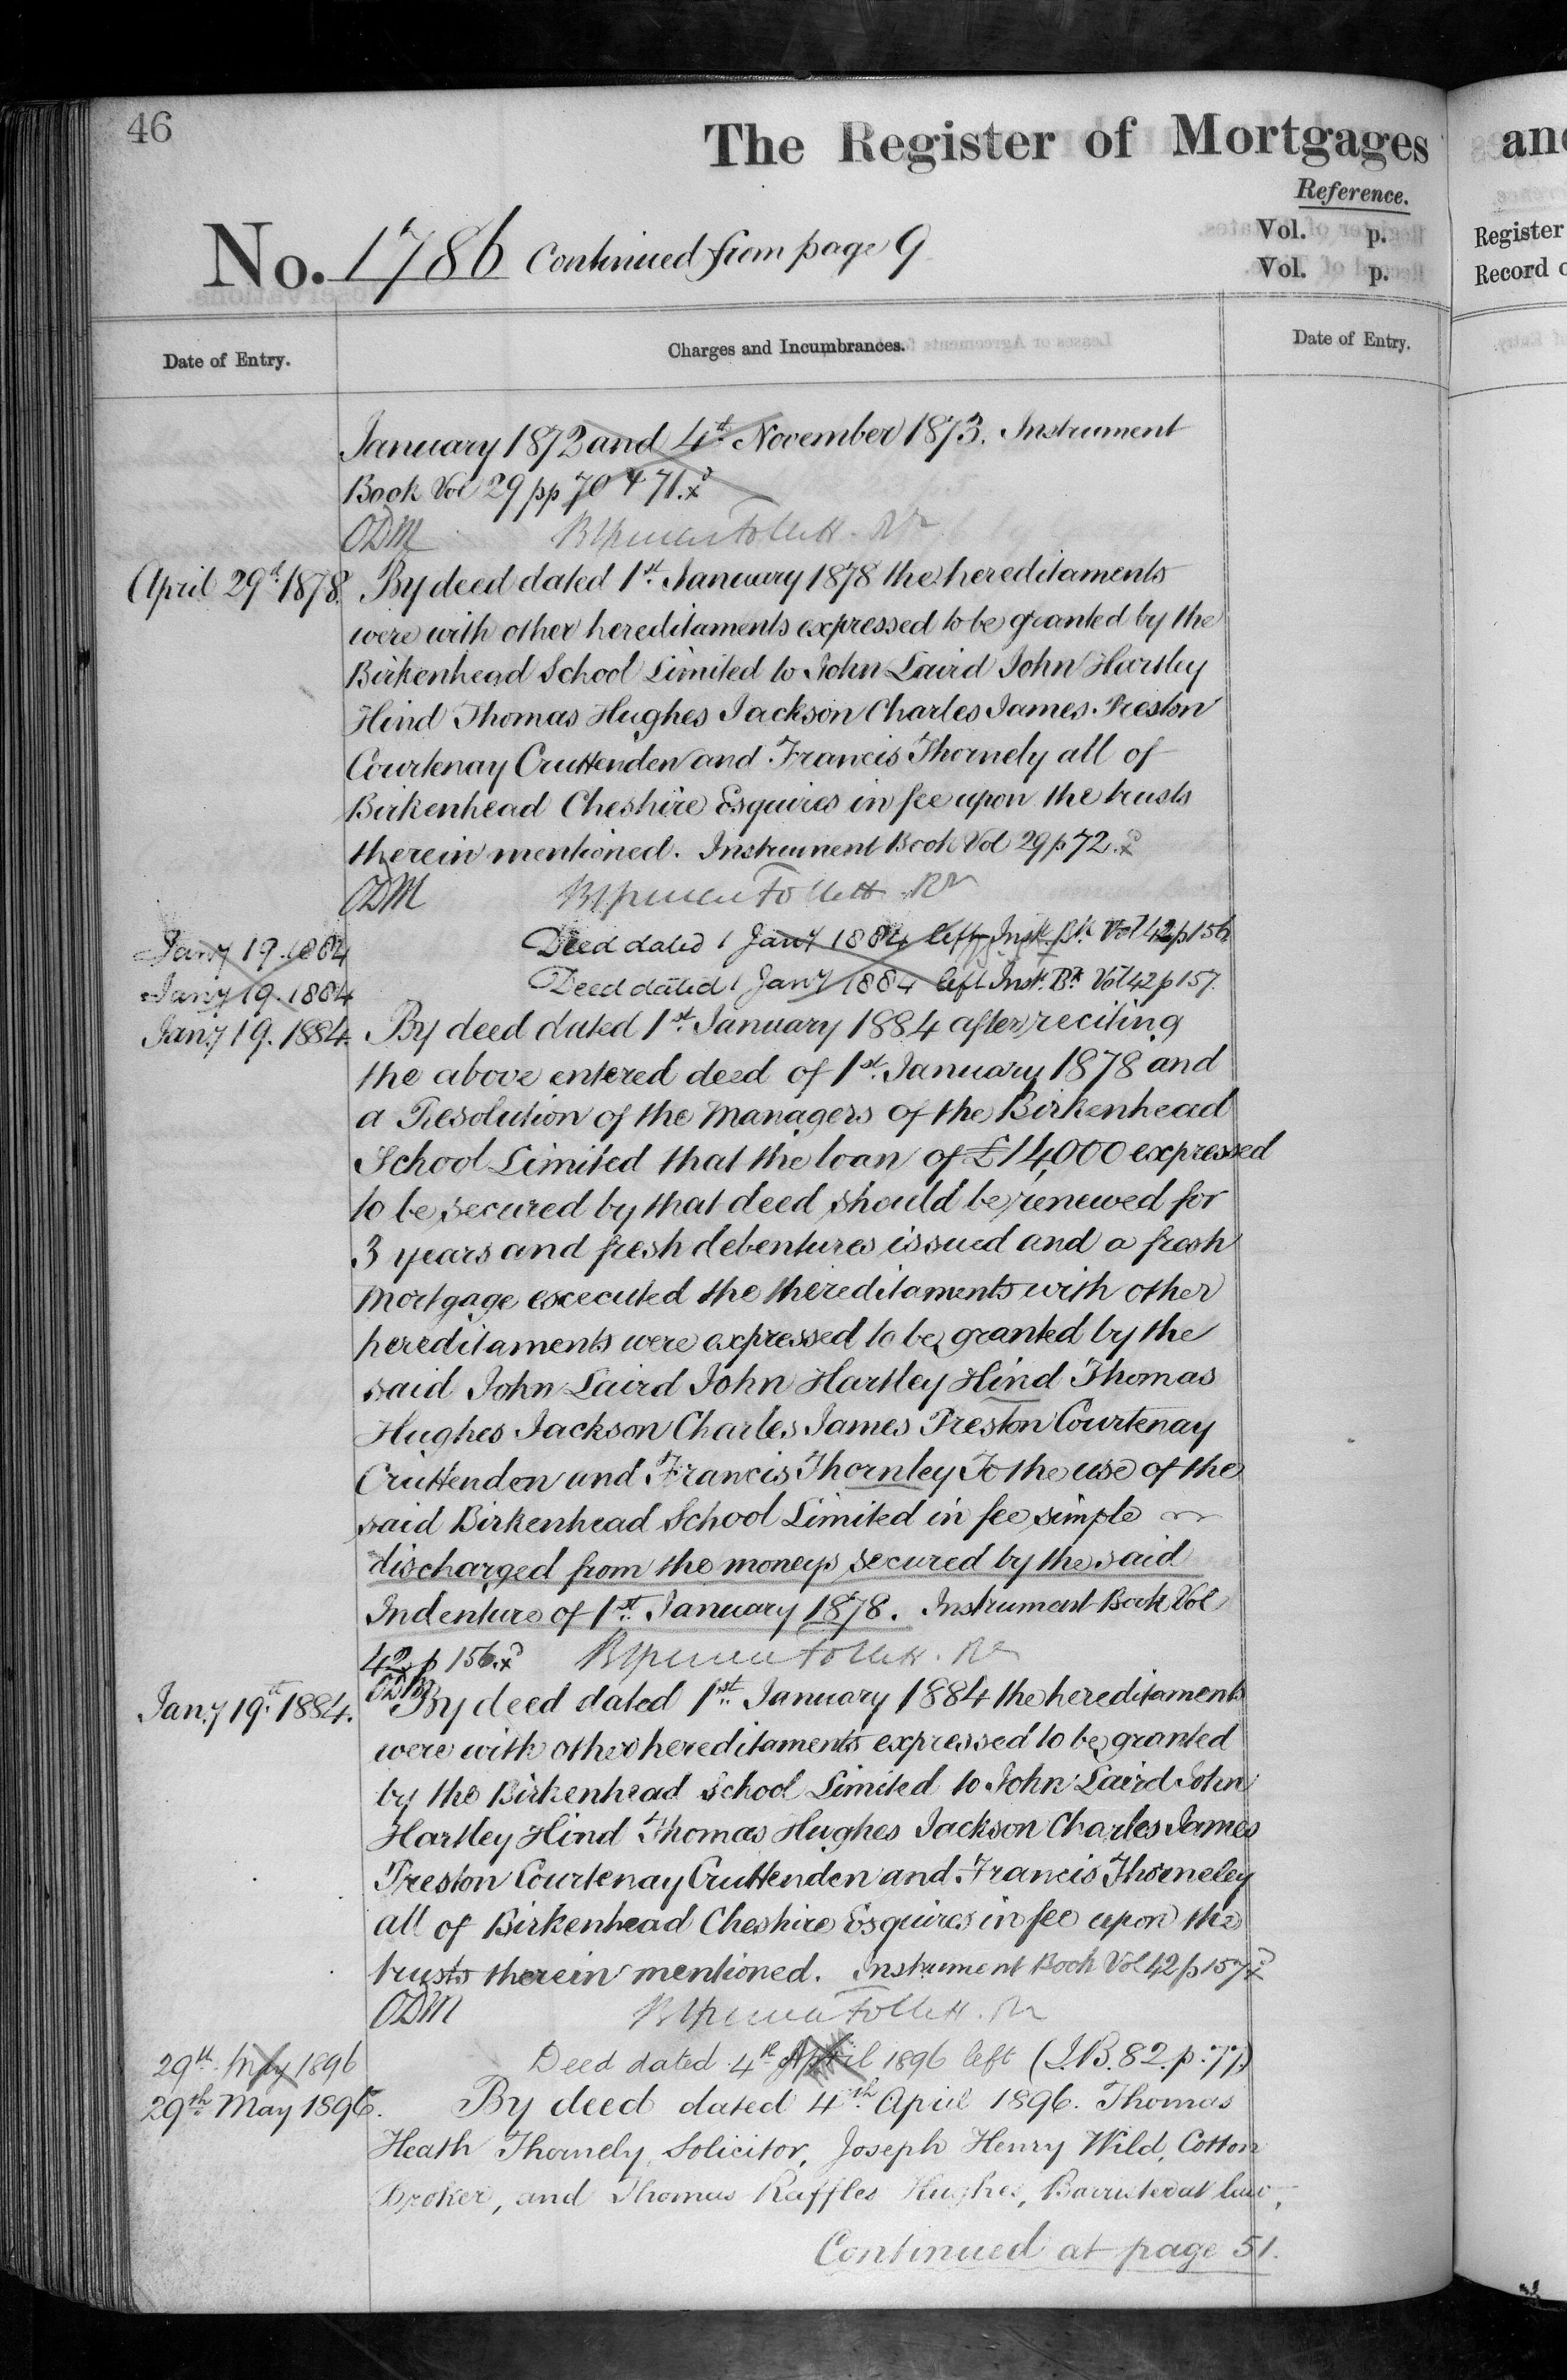 46
The Register of Mortgages
and
Reference.
No. 1786 Continued from page 9
Vol. p.
Vol. p.
Register
Record
Date of Entry.
Charges and Incumbrances.
Date of Entry.
January 1872 and 4th November 1873. Instrument
Book Vol 29 pp 70 & 71.
ODM
April 29th 1878. By deed dated 1st January 1878 the hereditaments
were with other hereditaments expressed to be granted by the
Birkenhead School Limited to John Laird John Hartley
Hind Thomas Hughes Jackson Charles James Preston
Courtenay Cruttenden and Francis Thornely all of
Birkenhead Cheshire Esquires in fee upon the trusts
therein mentioned. Instrument Book Vol 29 p 72.
ODM
Jany 19. 1884 Deed dated 1 Jany 1884 left Inst. Bk. Vol 42 p 156
Jany 19. 1884 Deed dated 1 Jany 1884 left Inst. Bk Vol 42 p 157.
Jany 19. 1884. By deed dated 1st January 1884 after reciting
the above entered deed of 1st January 1878 and
a Resolution of the Managers of the Birkenhead
School Limited that the loan of £14,000 expressed
to be secured by that deed should be renewed for
3 years and fresh debentures issued and a fresh
mortgage executed the thereditaments with other
hereditaments were expressed to be granted by the
said John Laird John Hartley Hind Thomas
Hughes Jackson Charles James Preston Courtenay
Cruttenden and Francis Thornley To the use of the
said Birkenhead School Limited in fee simple
discharged from the moneys secured by the said
Indenture of 1st January 1878. Instrument Book Vol
42 p 156.
ODM
Jany 19th 1884. By deed dated 1st January 1884 the hereditaments
were with other hereditaments expressed to be granted
by the Birkenhead School Limited to John Laird John
Hartley Hind Thomas Hughes Jackson Charles James
Preston Courtenay Cruttenden and Francis Thorneley
all of Birkenhead Cheshire Esquires in fee upon the
trusts therein mentioned. Instrument Book Vol 42 p 157
ODM
29th May 1896 Deed dated 4th April 1896 left (I.B. 82. p. 77)
29th May 1896. By deed dated 4th April 1896. Thomas
Heath Thornely, Solicitor, Joseph Henry Wild, Cotton
Broker, and Thomas Raffles Hughes, Barrister at law,
Continued at page 51.